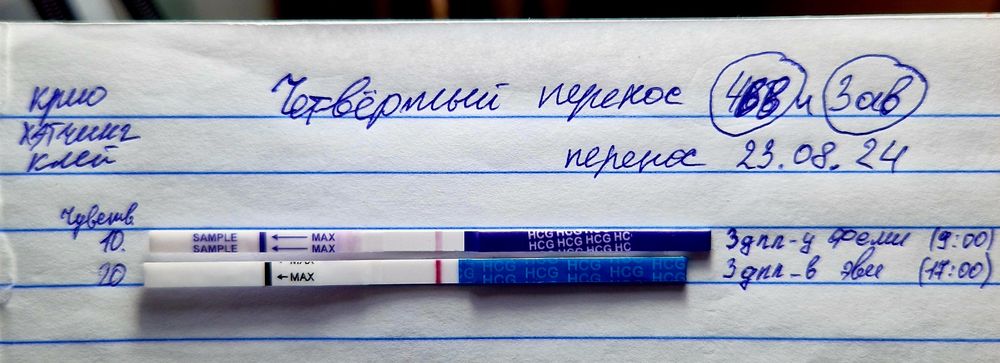 крио
хэтчинг
клей
Четвёртый перенос 4ВВ и 3ав
перенос 23.08.24
Чувств.
10. SAMPLE MAX HCG HCG HCG HC 3дпп-у феми (9:00)
SAMPLE MAX HCG HCG HCG HC
20 MAX HCG HCG HCG HCG 3дпп-в эви (17:00)